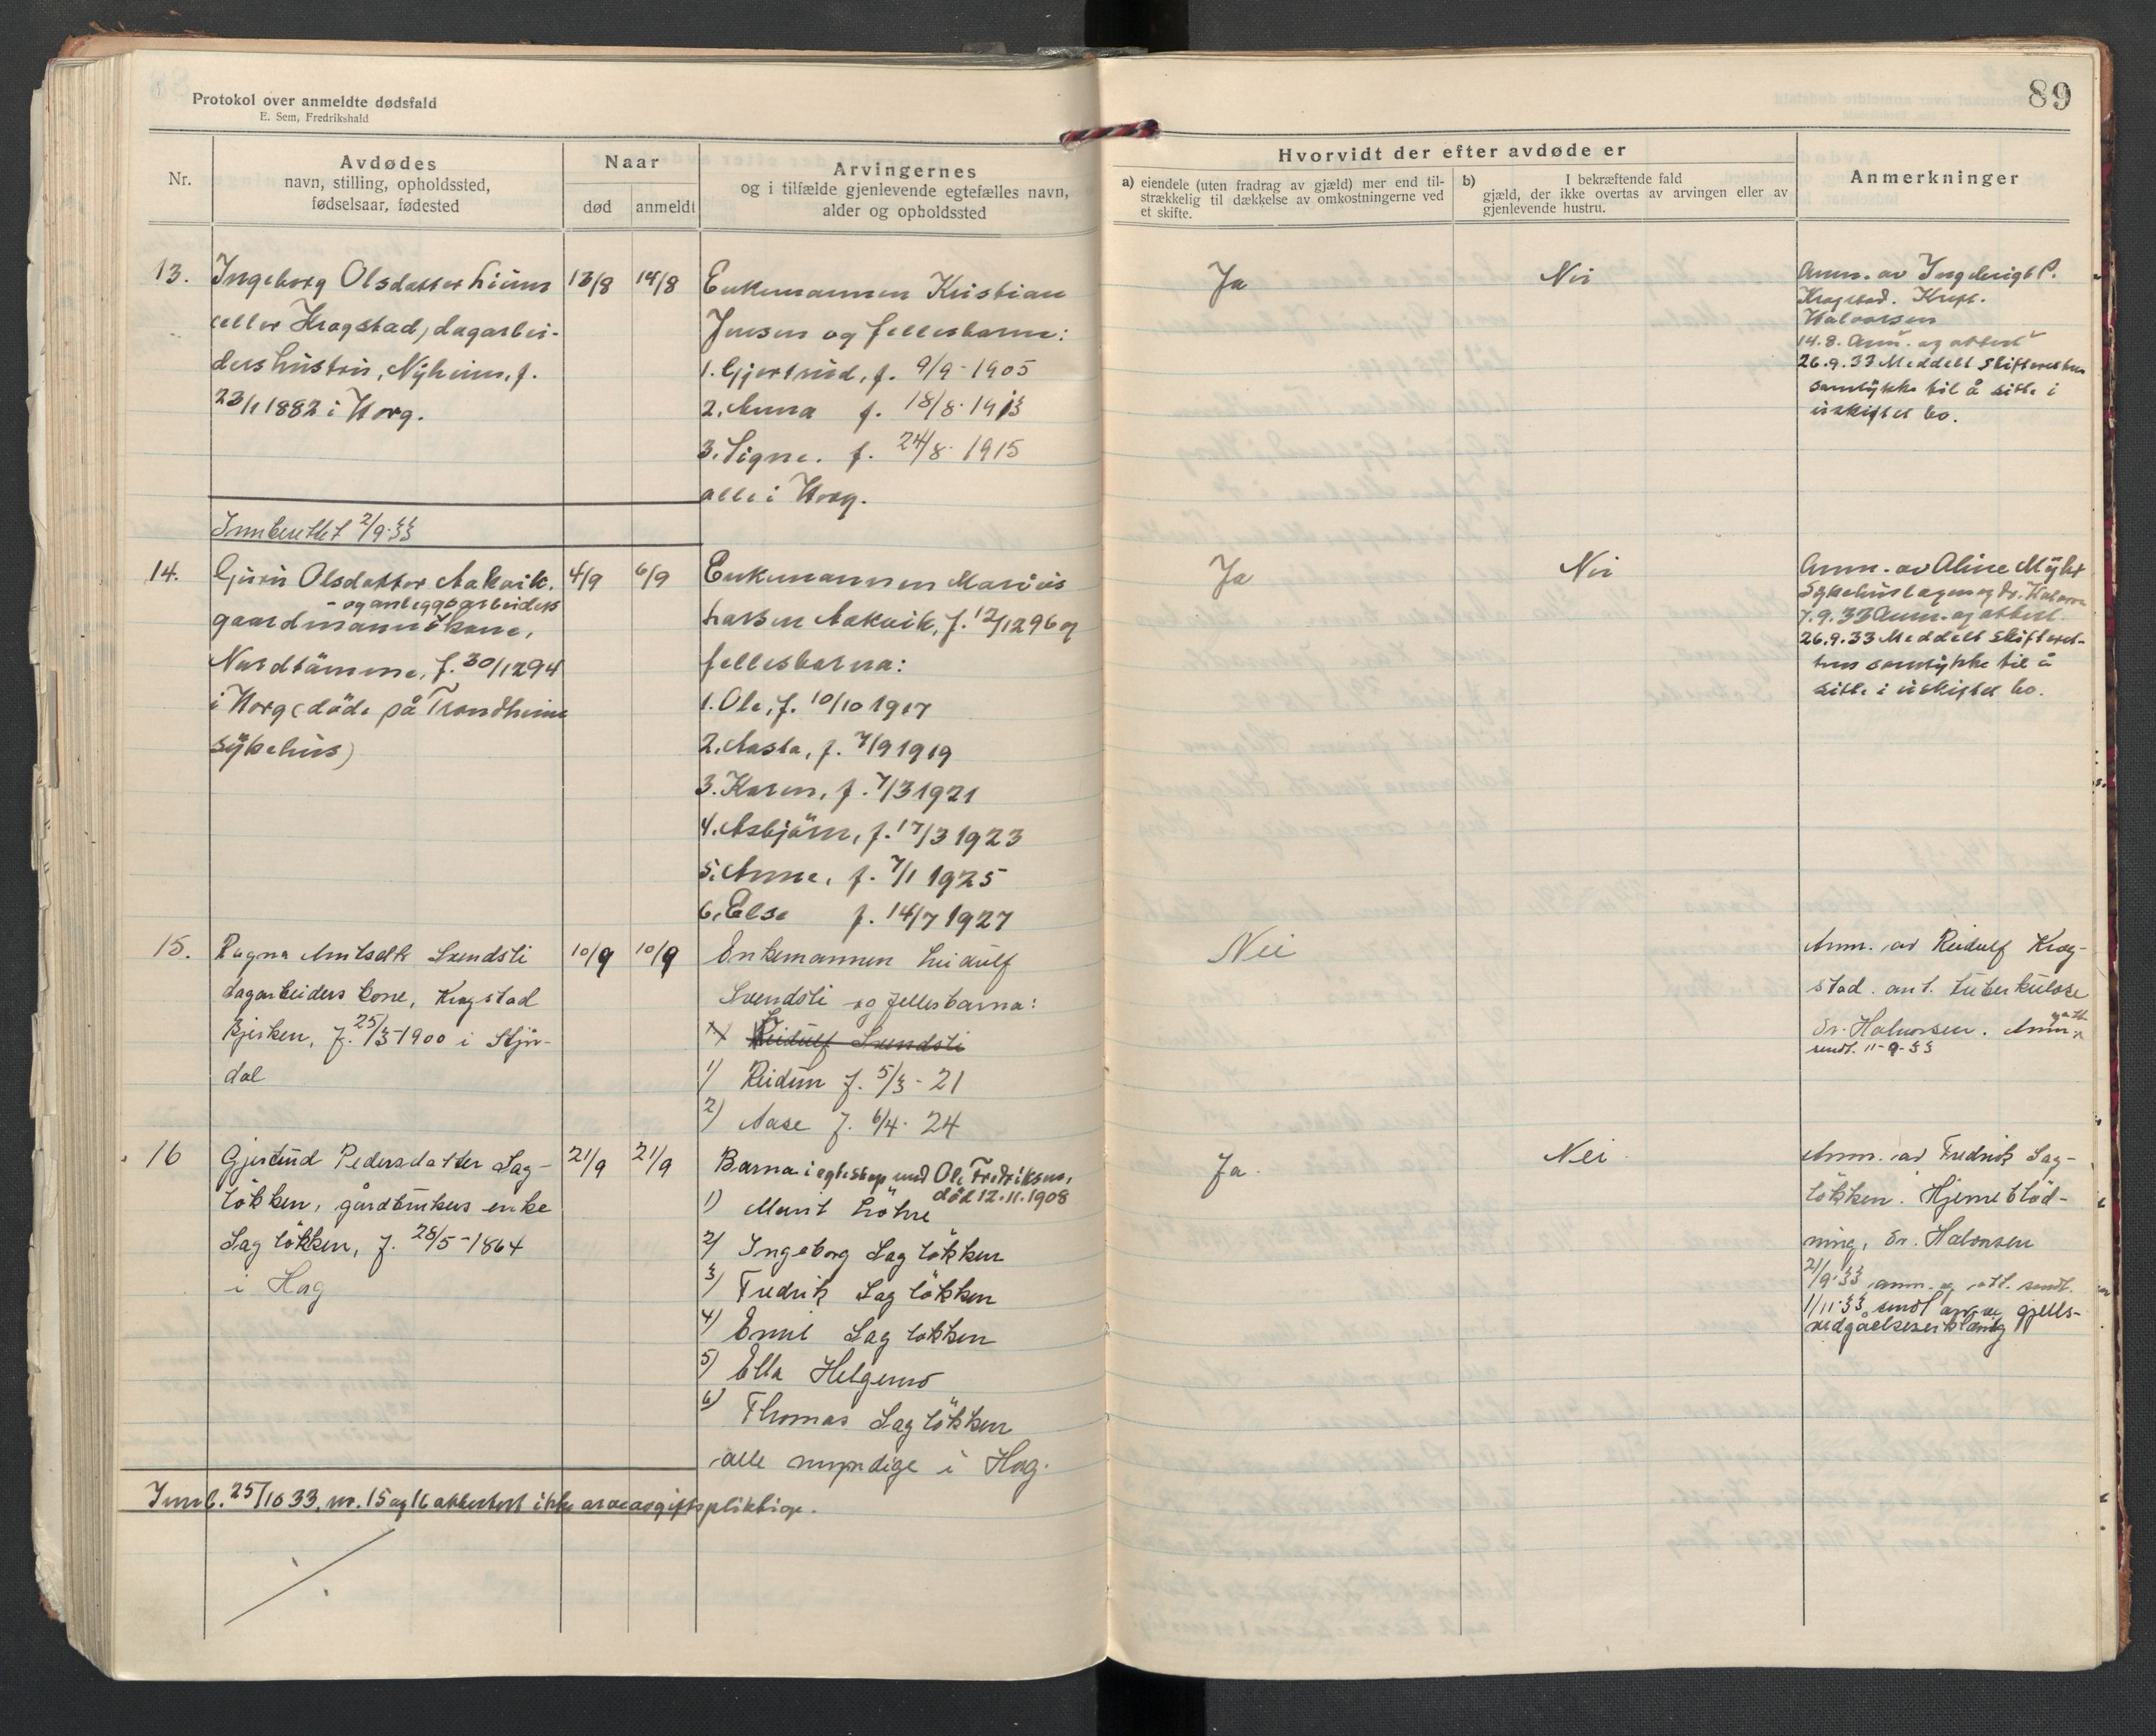 Protokol over anmeldte dødsfald
E. Sem, Fredrikshald
89
Nr.
Avdødes
navn, stilling, opholdssted,
fødselsaar, fødested
Naar
død
anmeldt
Arvingernes
og i tilfælde gjenlevende egtefælles navn,
alder og opholdssted
Hvorvidt der efter avdøde er
a) eiendele (uten fradrag av gjæld) mer end til-
strækkelig til dækkelse av omkostningerne ved
et skifte.
b) I bekræftende fald
gjæld, der ikke overtas av arvingen eller av
gjenlevende hustru.
Anmerkninger
13.
Ingeborg Olsdatter Lium
(eller Kragstad) dagarbei-
ders hustru, Nyheim, f.
23/1 1882 i Horg.
13/8
14/8
Enkemannen Kristian
Jensen og fellesbarn:
1. Gjertrud, f. 9/9-1905
2. Anna f. 18/8-1913
3. Signe. f. 24/8 1915
alle i Horg.
Ja
Nei
Anm. av Ingebrigt P.
Kragstad. Kreft.
Halvorsen
14.8. Anm. og attest
26.9.33 Meddelt Skifterettens
samtykke til å sitte i
uskiftet bo.
Innberettet 2/9-33
14.
Guru Olsdatter Aakvik.
- og anleggsarbeiders
gaardmannskone,
Nordtømme, f. 30/1294
i Horg (døde på Trondheim
sykehus)
4/9
6/9
Enkemannen Marius
Larsen Aakvik, f. 12/1296 og
fellesbarna:
1. Ole, f. 10/10 1917
2. Aasta, f. 7/9 1919
3. Karen, f. 7/3 1921
4. Asbjørn, f. 17/3 1923
5. Anne, f. 7/1 1925
6. Else f. 14/7 1927
Ja
Nei
Anm. av Aline Myhr
7.9.33 Anm. og attest.
26.9.33 Meddelt Skifteret-
tens samtykke til å
sitte i uskiftet bo.
15.
Ragna Svendsli
dagarbeiders kone, Kragstad
Bjerken, f. 25/3-1900 i Stjør-
dal
10/9
10/9
Enkemannen Leidulf
Svendsli og fellesbarna:
1) Reidulf Svendsli
1) Reidun f. 5/3-21
2) Aase f. 6/4-24
Nei
Anm. av Reidulf Krag-
stad. ant. tuberkulose
Dr. Halvorsen. Anm.
sendt. 11-9-33
16
Gjertrud Pedersdatter Sag-
løkken, gårdbrukers enke
Sagløkken, f. 28/5-1864
i Hog
21/9
21/9
Barna i egteskap med Ole Fredriksen,
død 12.11.1908
1) Marit Løhre
2) Ingeborg Sagløkken
3) Fredrik Sagløkken
4) Emil Sagløkken
5) Ella Helgemo
6) Thomas Sagløkken
alle myndige i Hog.
Ja.
Nei.
Anm. av Fredrik Sag-
løkken. Hjerneblød-
ning, Dr. Halvorsen
21/9-33 anm. og att. sendt.
1/11-33 sendt arv. og gjelds-
vedgåelseserklæring
Innb. 25/10 33, nr. 15 og 16 attestert ikke arveavgiftspliktige.